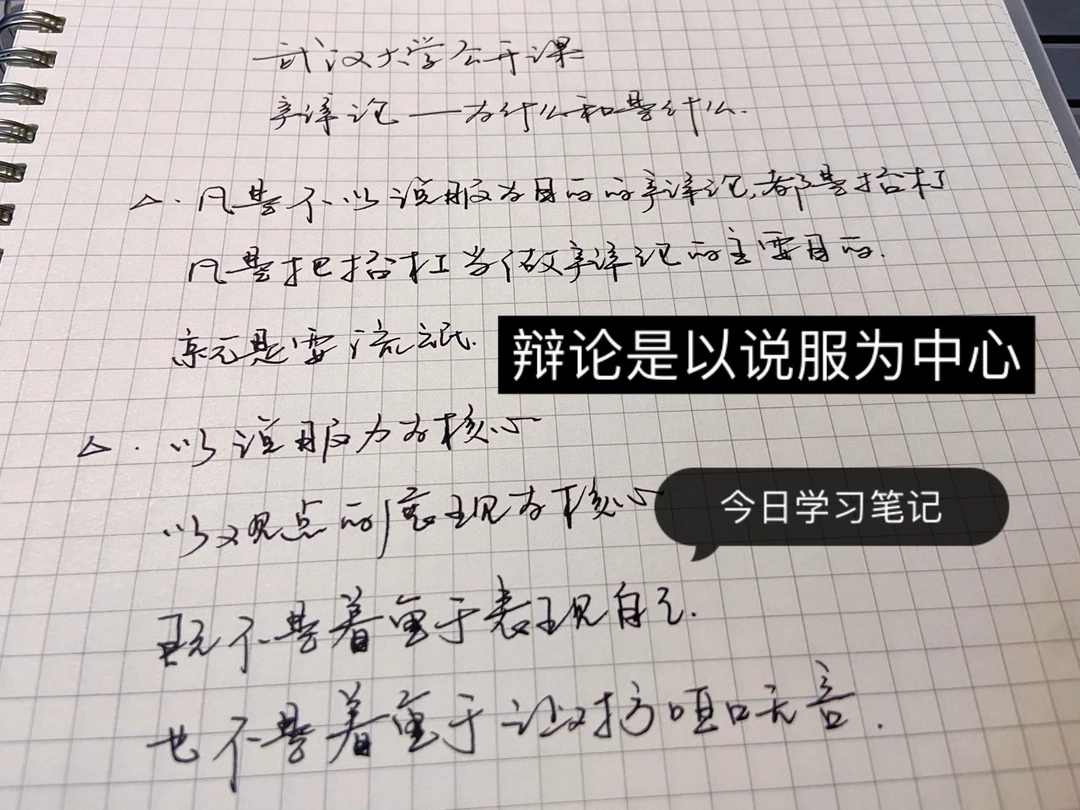 武汉大学公开课
辩论——为什么和是什么.
△.凡是不以说服为目的的辩论,都是抬杠
凡是把抬杠当做辩论的主要目的.
都是耍流氓.
辩论是以说服为中心
△.以说服力为核心
以观点的展现为核心
今日学习笔记
既不是着重于表现自己.
也不是着重于让对方哑口无言.